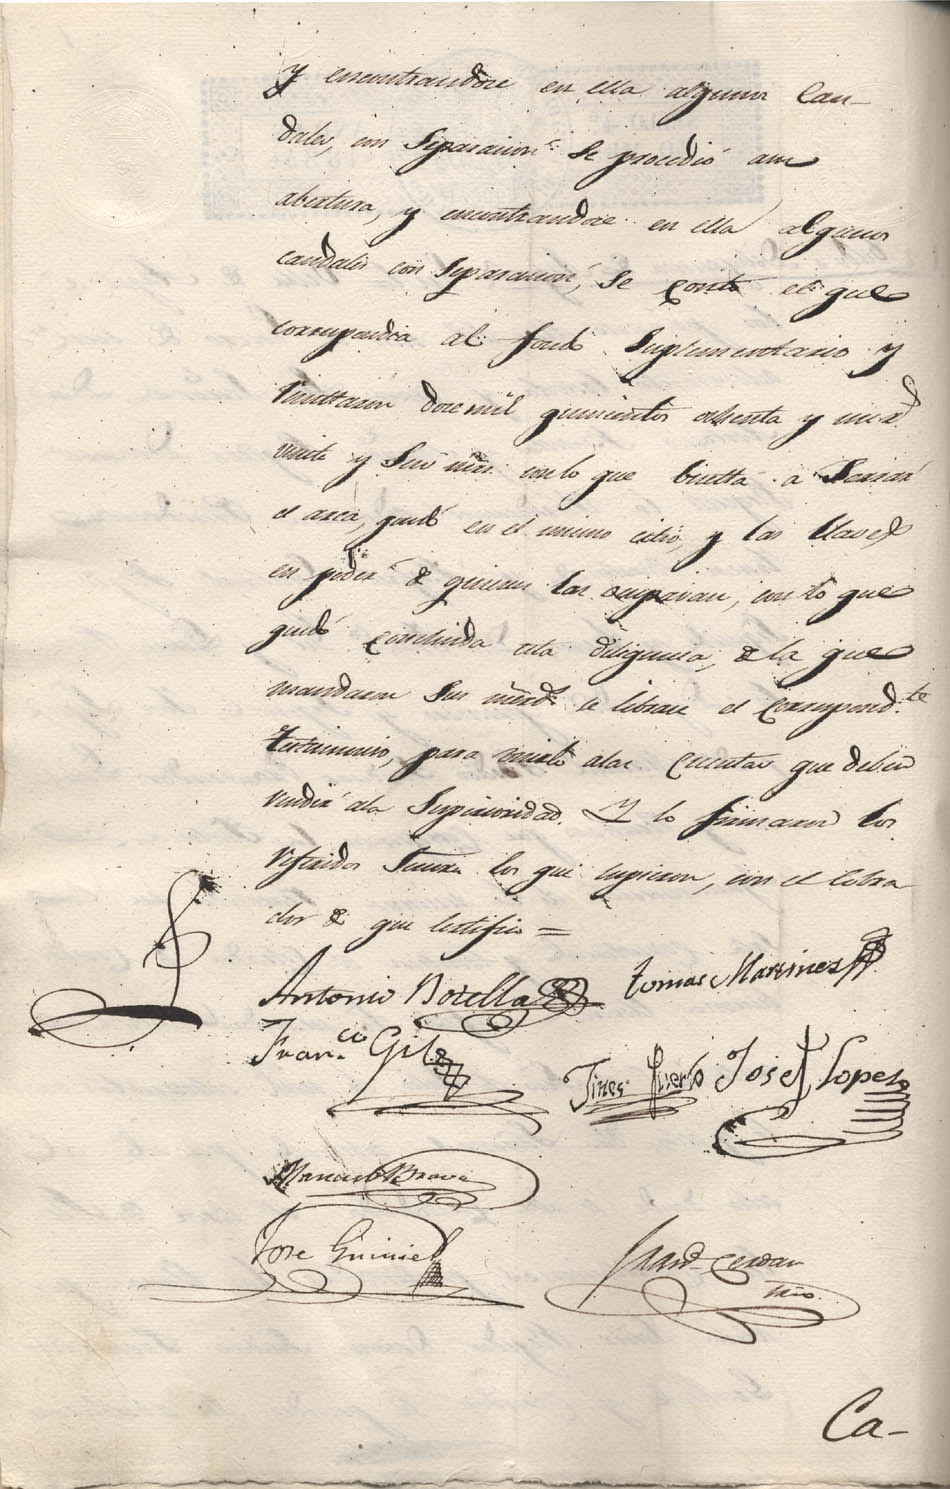 y encontrandose en ella algunos Cau-
dales, con Separacion se procedió a su
abertura, y encontrandose en ella algunos
caudales con Separacion, se contó el que
correspondia al fondo Suplementario y
resultaron doce mil quinientos ochenta y un rs
veinte y seis mrs. con lo que buelta a Serrar
el arca, quedó en el mismo citio, y las llaves
en poder de quienes las ocupavan, con lo que
quedó concluida esta diligencia, de la que
mandaron Sus mrds. se librase el correspond.te
testimonio, para unirlo a las Cuentas que deben
rendir a la Superioridad. Y lo firmaron los
referidos Señores los que supieron, con el Cobra
dor de que certifico =
Antonio Botella tomas Martinez
Fran.co Gil
Jines Huerto Josef Lopez
Manuel Bravo
Jose Guiniel
Cerdan
Srio.
Ca-